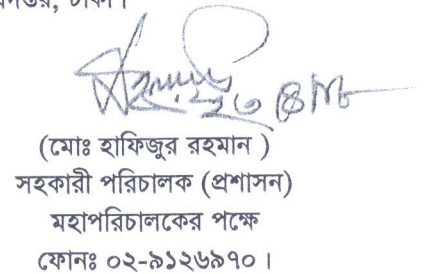 ঢাকা।
(মোঃ হাফিজুর রহমান )
সহকারী পরিচালক (প্রশাসন)
মহাপরিচালকের পক্ষে
ফোনঃ ০২-৯১২৬৯৭০।